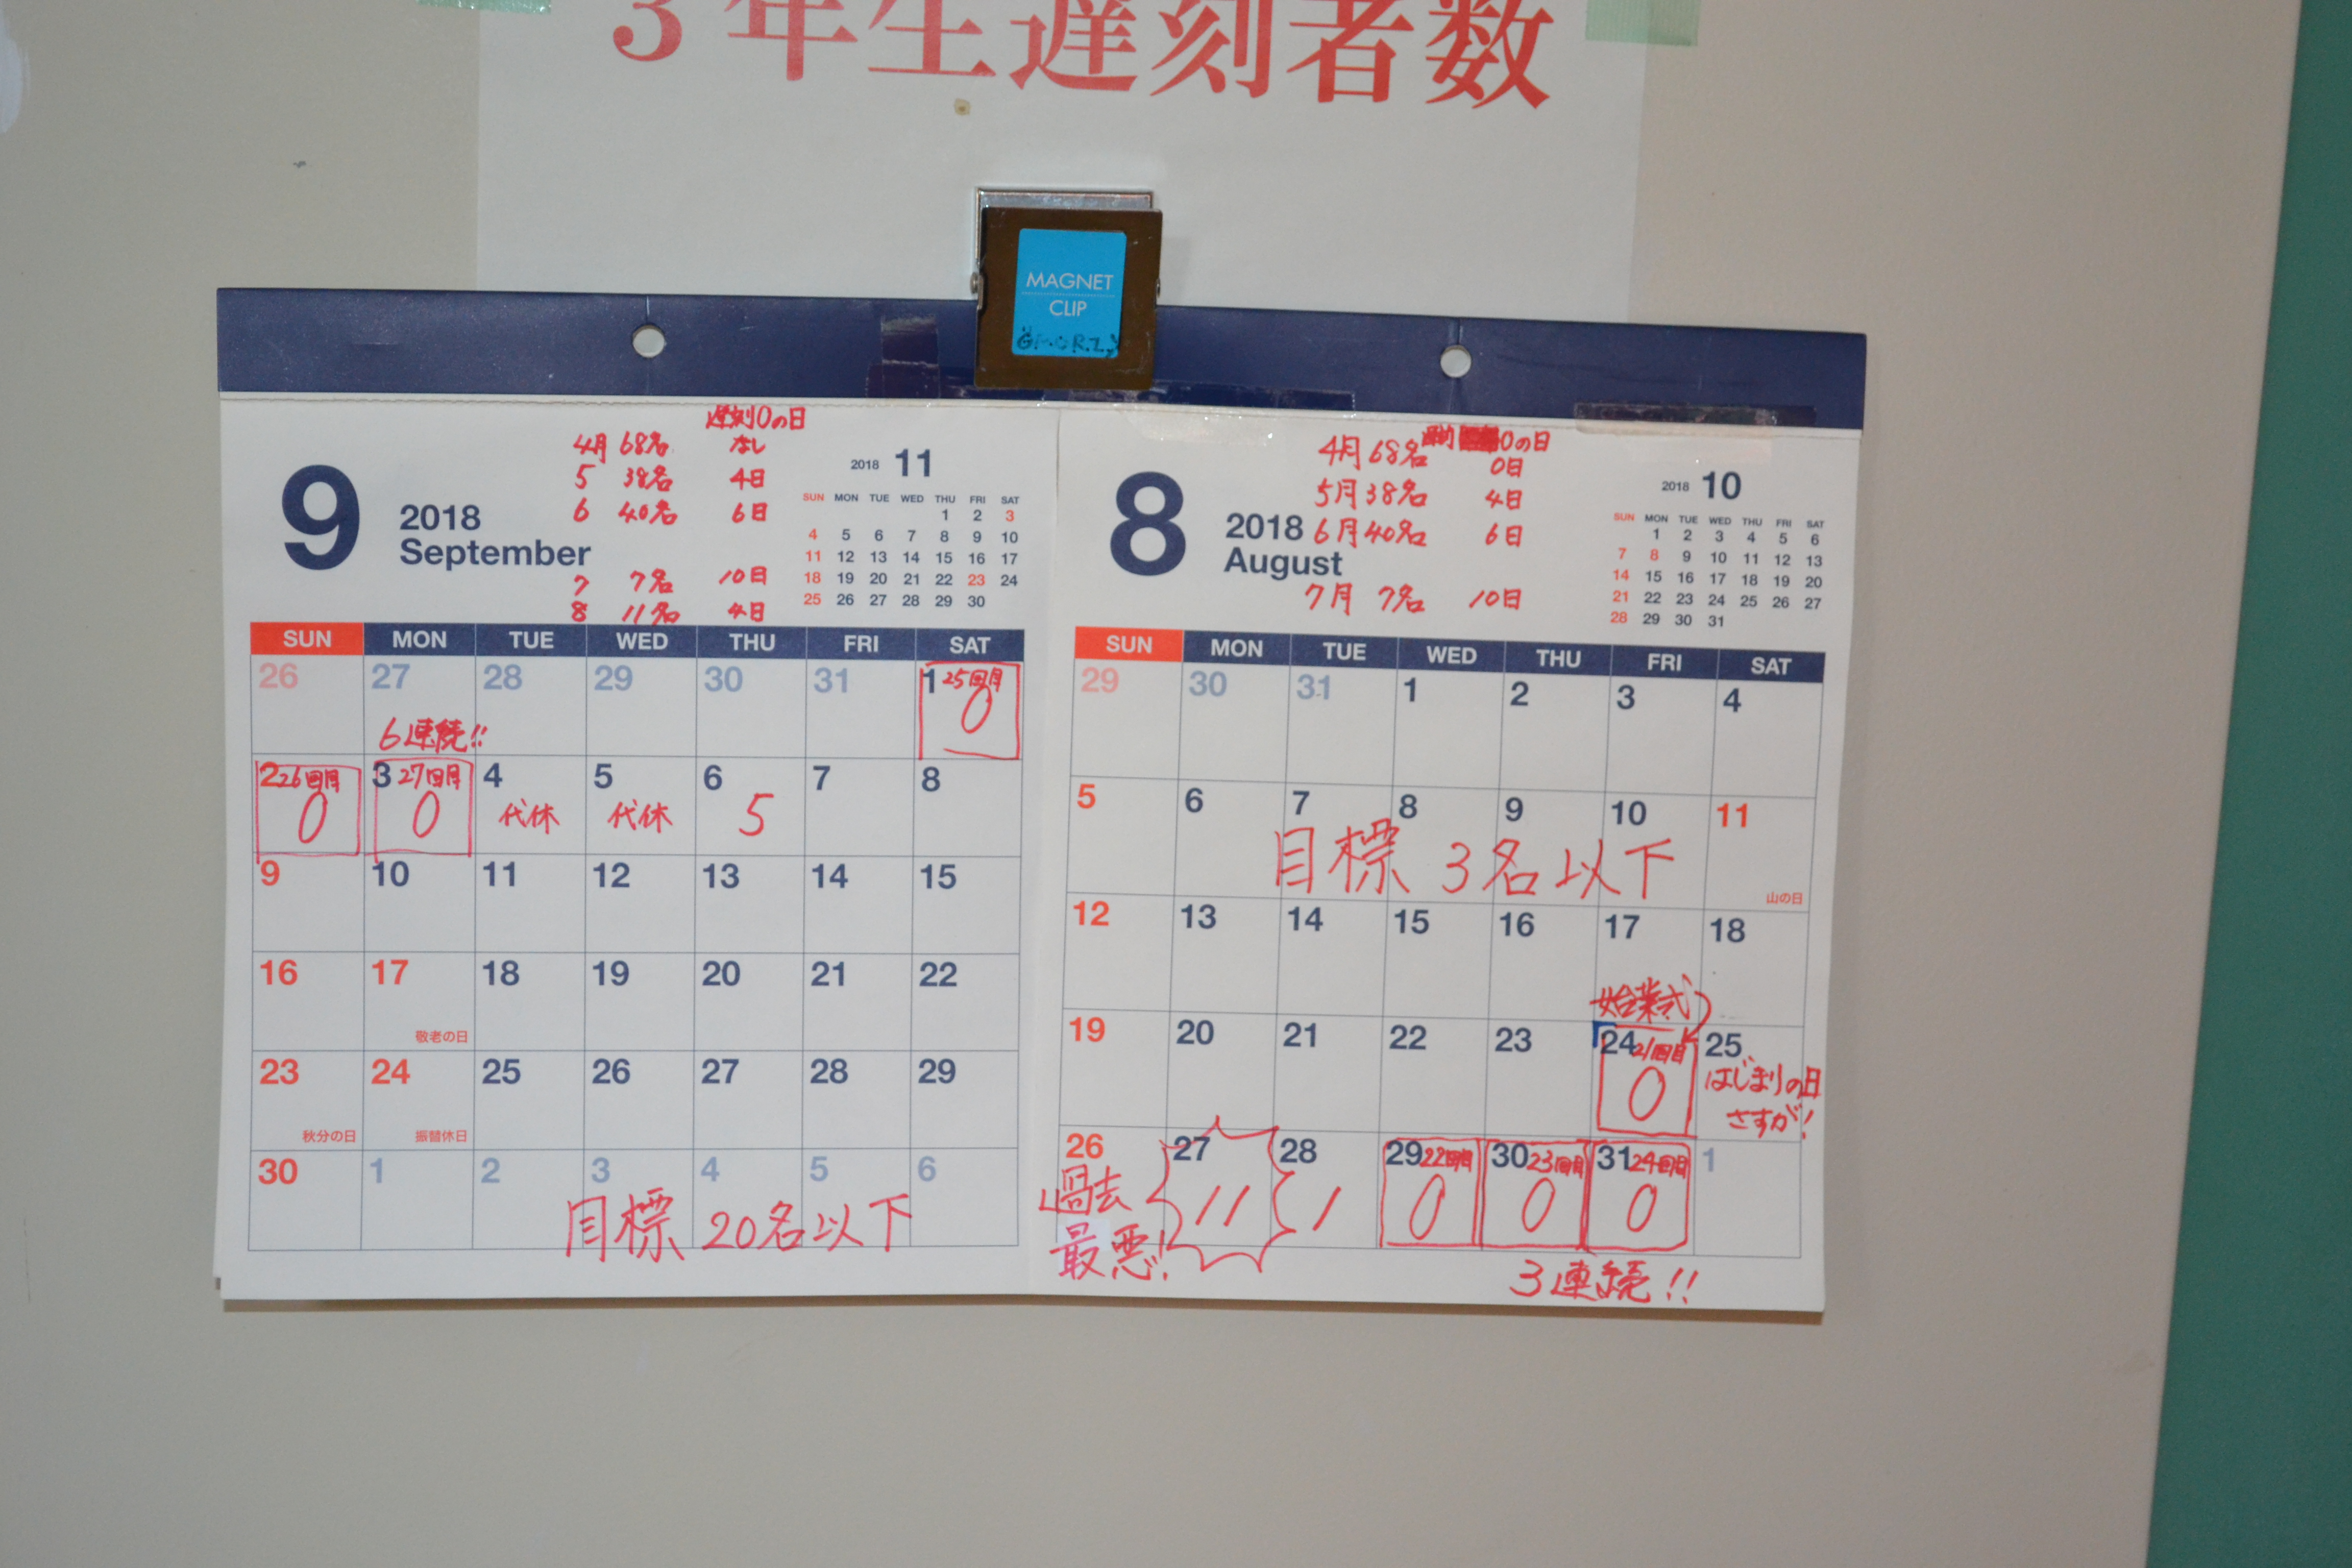 3年生遅刻者数
MAGNET
CLIP
遅刻0の日
4月 68名 なし
5 38名 4日
6 40名 6日
7 7名 10日
8 11名 4日
9
2018
September
2018 11
SUN MON TUE WED THU FRI SAT
1 2 3
4 5 6 7 8 9 10
11 12 13 14 15 16 17
18 19 20 21 22 23 24
25 26 27 28 29 30
SUN MON TUE WED THU FRI SAT
26 27 28 29 30 31 1 25回目
0
6連続!!
2 26回目 3 27回目 4 5 6 7 8
0 0 代休 代休 5
9 10 11 12 13 14 15
16 17 18 19 20 21 22
敬老の日
23 24 25 26 27 28 29
秋分の日 振替休日
30 1 2 3 4 5 6
目標 20名以下
0の日
4月 68名 0日
5月 38名 4日
6月 40名 6日
7月 7名 10日
8
2018
August
2018 10
SUN MON TUE WED THU FRI SAT
1 2 3 4 5 6
7 8 9 10 11 12 13
14 15 16 17 18 19 20
21 22 23 24 25 26 27
28 29 30 31
SUN MON TUE WED THU FRI SAT
29 30 31 1 2 3 4
5 6 7 8 9 10 11
目標 3名以下
山の日
12 13 14 15 16 17 18
始業式
19 20 21 22 23 24 21回目 25
0 はじまりの日
さすが!
26 27 28 29 22回目 30 23回目 31 24回目 1
過去 11 1 0 0 0
最悪!
3連続!!